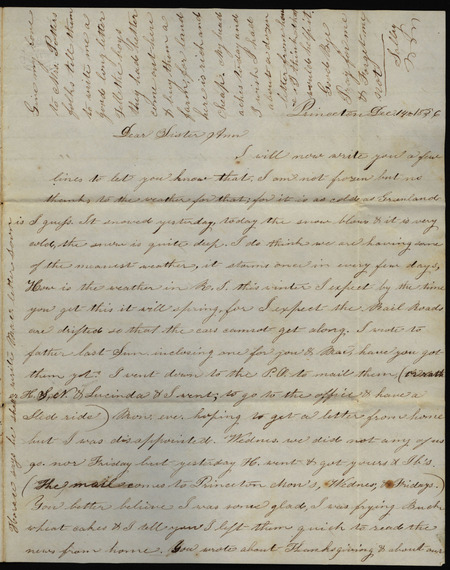 Princeton Dec. 14th 1856
Dear Sister Ann
I will now write you a few
lines to let you know that I am not frozen but no
thanks to the weather for that; for it is as cold as Greenland
is I guess. It snowed yesterday, today the snow blows & it is very
cold, the snow is quite deep. I do think we are having some
of the meanest weather, it storms once in every few days,
How is the weather in R. I. this winter I expect by the time
you get this it will spring, for I expect the Rail Roads
are drifted so that the cars cannot get along. I wrote to
father last Sun. inclosing one for you & Mar, have you got
them yet I went down to the P.O. to mail them (or rath
H. & Lucinda & I went; to go to the office & have a
Sled ride) Mon. eve hoping to get a letter from home
but I was disappointed. Wednes. we did not any of us
go, nor Friday but yesterday H. went & got yours & Th's.
(The mail comes to Princeton Mon's, Wednes, & Fridays.)
You better believe I was some glad, I was frying Buck
wheat cakes & I tell you I left them quick to read the
news from home. You wrote about Thanksgiving & about our
Give my love
to all the
folks tell them
to write me a
good long letter
Tell the boys
they had better
come out here
& buy them a
farm, for land
here is rich and
cheap. My head
aches today and
I wish I had
about a dozen
letters from home
I think that
would help it,
Good Bye
Horace says he shall write Mar a letter soon